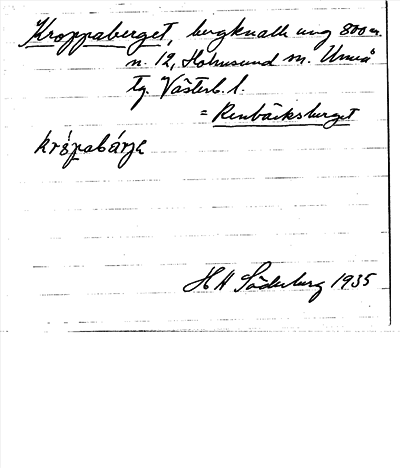 Kroppaberget, bergknalle ung 800 m.
n. 12, Holmsund m. Umeå
tg. Västerb. l.
= Renbäcksberget
krópabárjə
H H Söderberg 1935